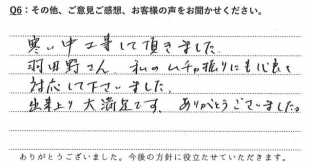 Q6：その他、ご意見ご感想、お客様の声をお聞かせください。
寒い中工事して頂きました。
羽田野さん、私のムチャ振りにも代表も
対応して下さいました。
出来上り大満足です。ありがとうございました。
ありがとうございました。今後の方針に役立たせていただきます。